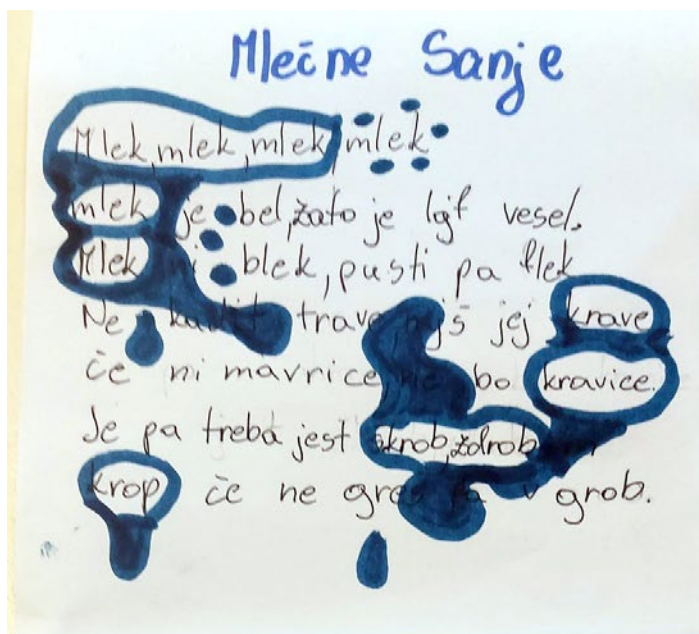 Mlečne Sanje
Mlek, mlek, mlek, mlek
mlek je bel, zato je lajf vesel.
Mlek ni blek, pusti pa flek
Ne kadit trave, rajš jej krave
če ni mavrice, ne bo kravice.
Je pa treba jest škrob, zdrob in
krop če ne greš pa v grob.